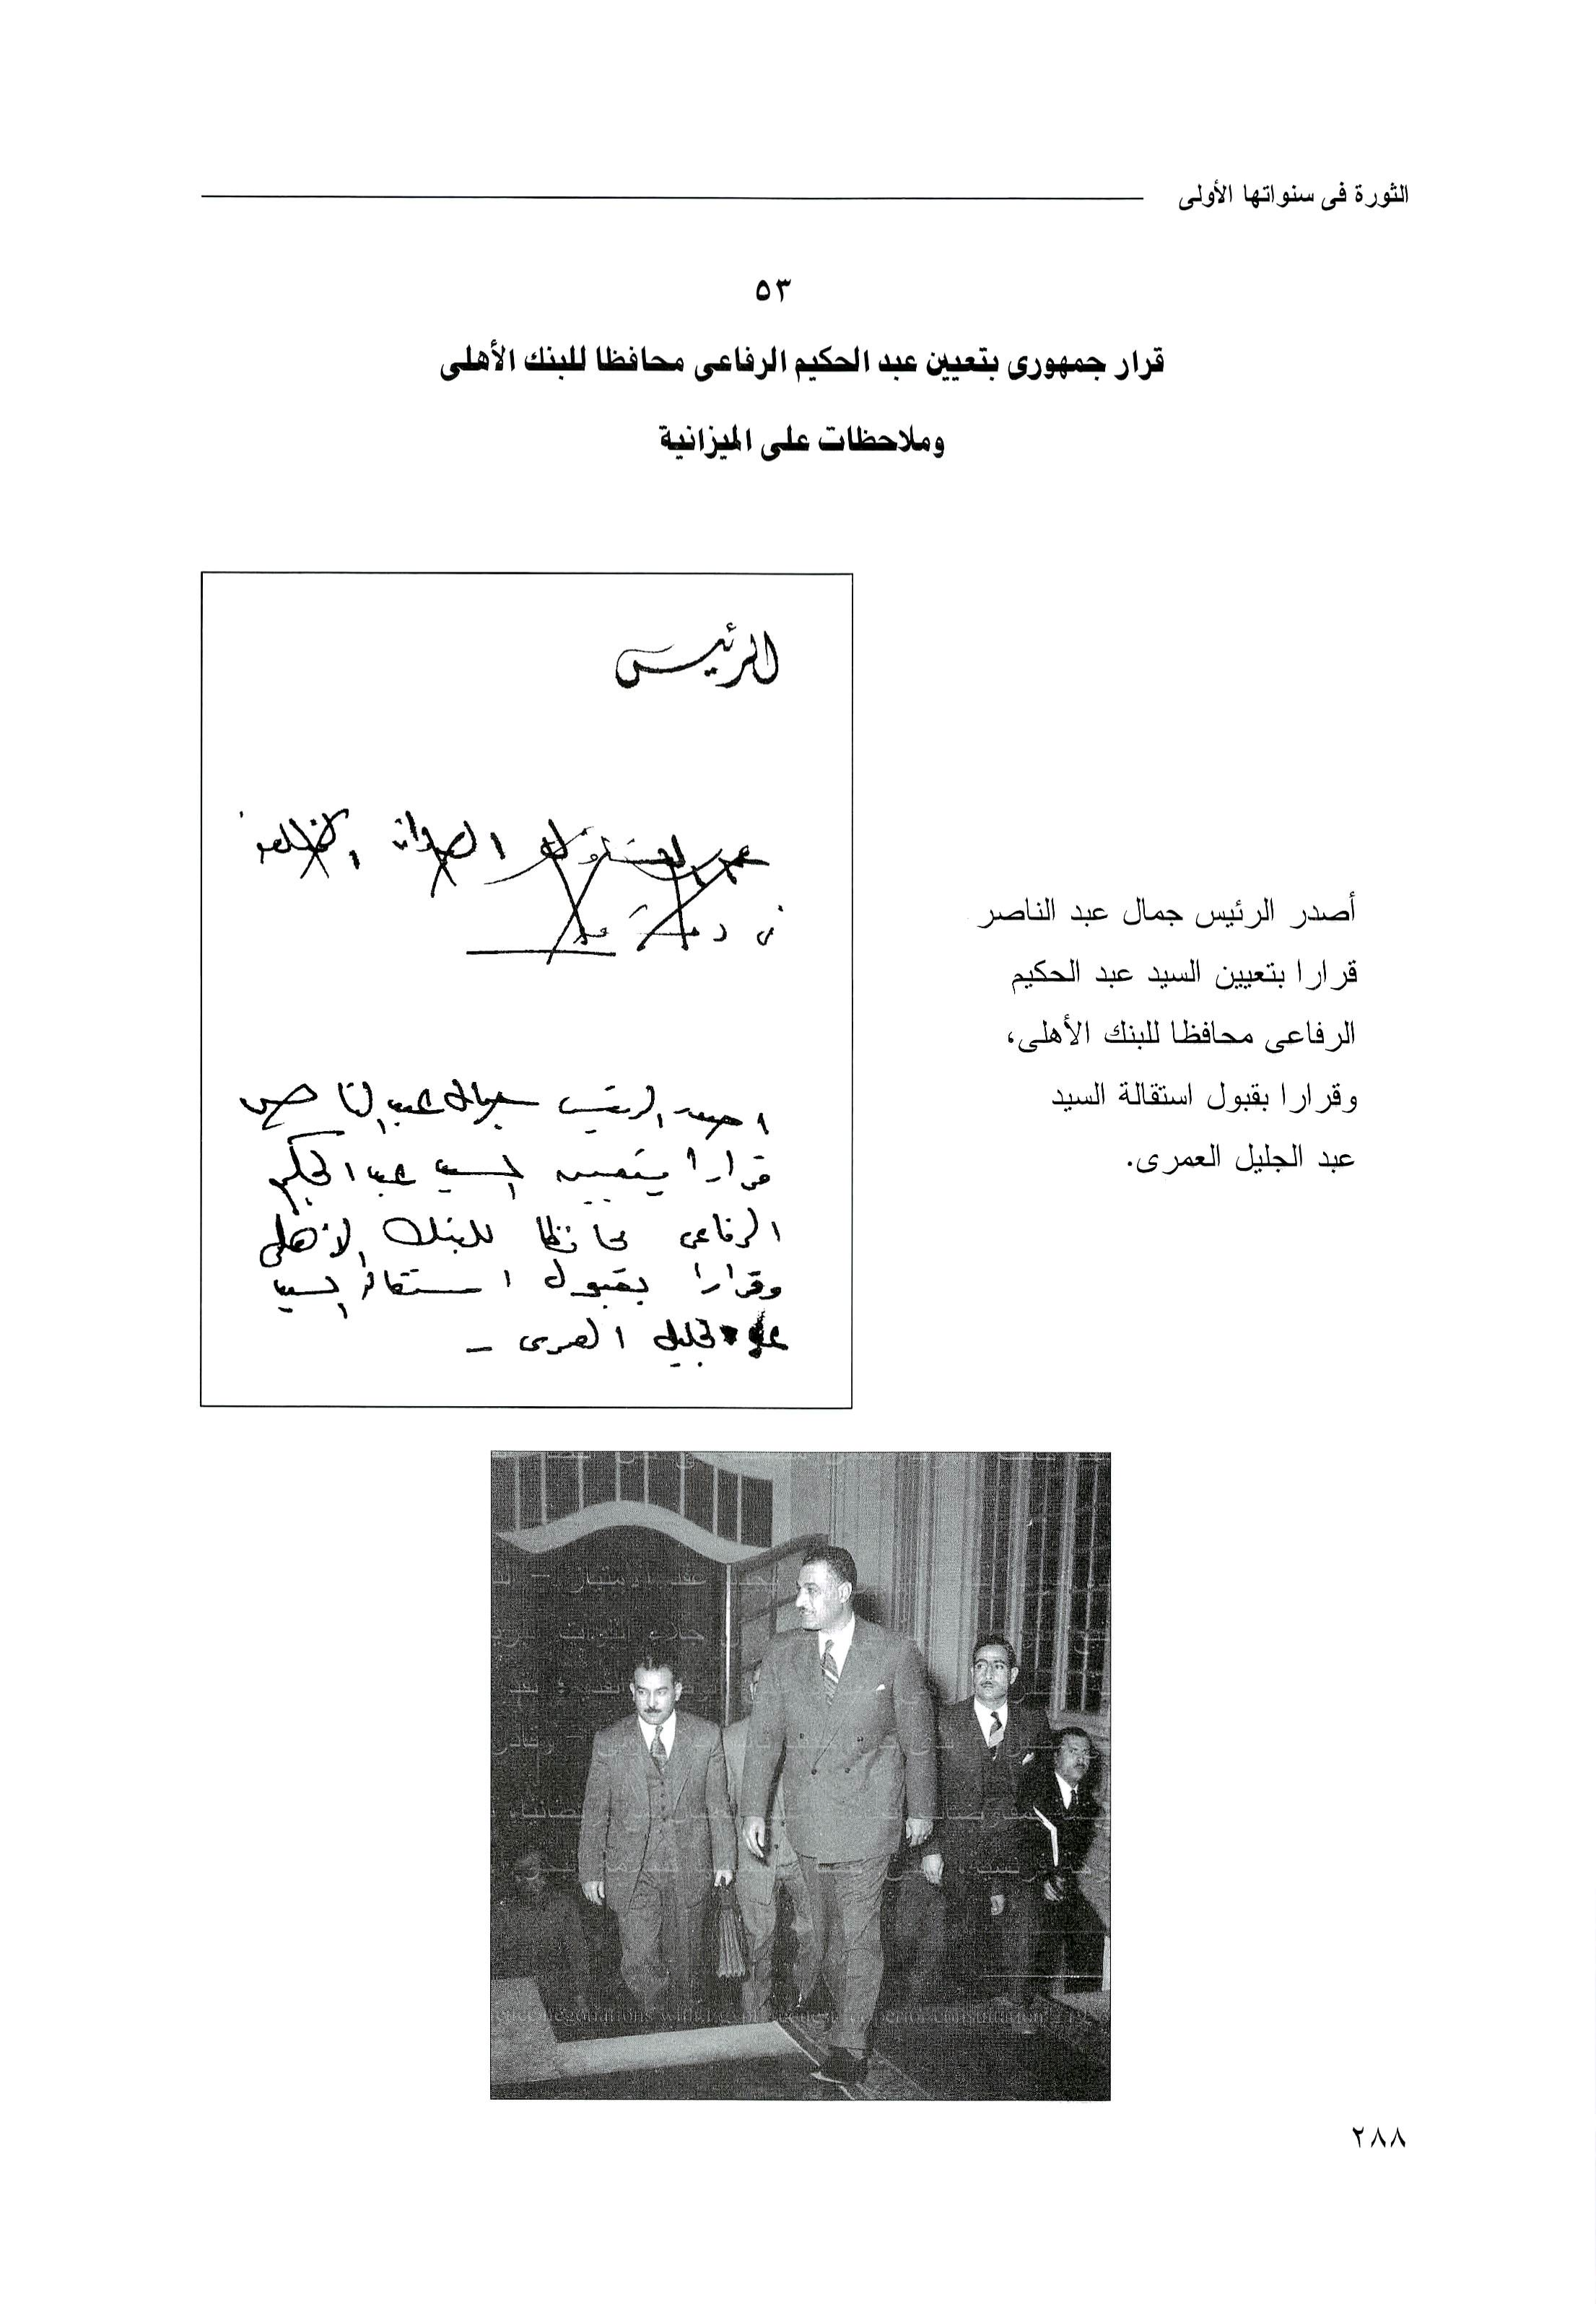 الثورة فى سنواتها الأولى
٥٣
قرار جمهورى بتعيين عبد الحكيم الرفاعى محافظا للبنك الأهلى
وملاحظات على الميزانية
الرئيس
أصدر الرئيس جمال عبد الناصر
قرارا بتعيين السيد عبد الحكيم
الرفاعى محافظا للبنك الأهلى،
وقرارا بقبول استقالة السيد
عبد الجليل العمرى.
اصدر الرئيس جمال عبد الناصر
قرارا بتعيين السيد عبد الحكيم
الرفاعى محافظا للبنك الاهلى
وقرارا بقبول استقالة السيد
عبد الجليل العمرى -
٢٨٨